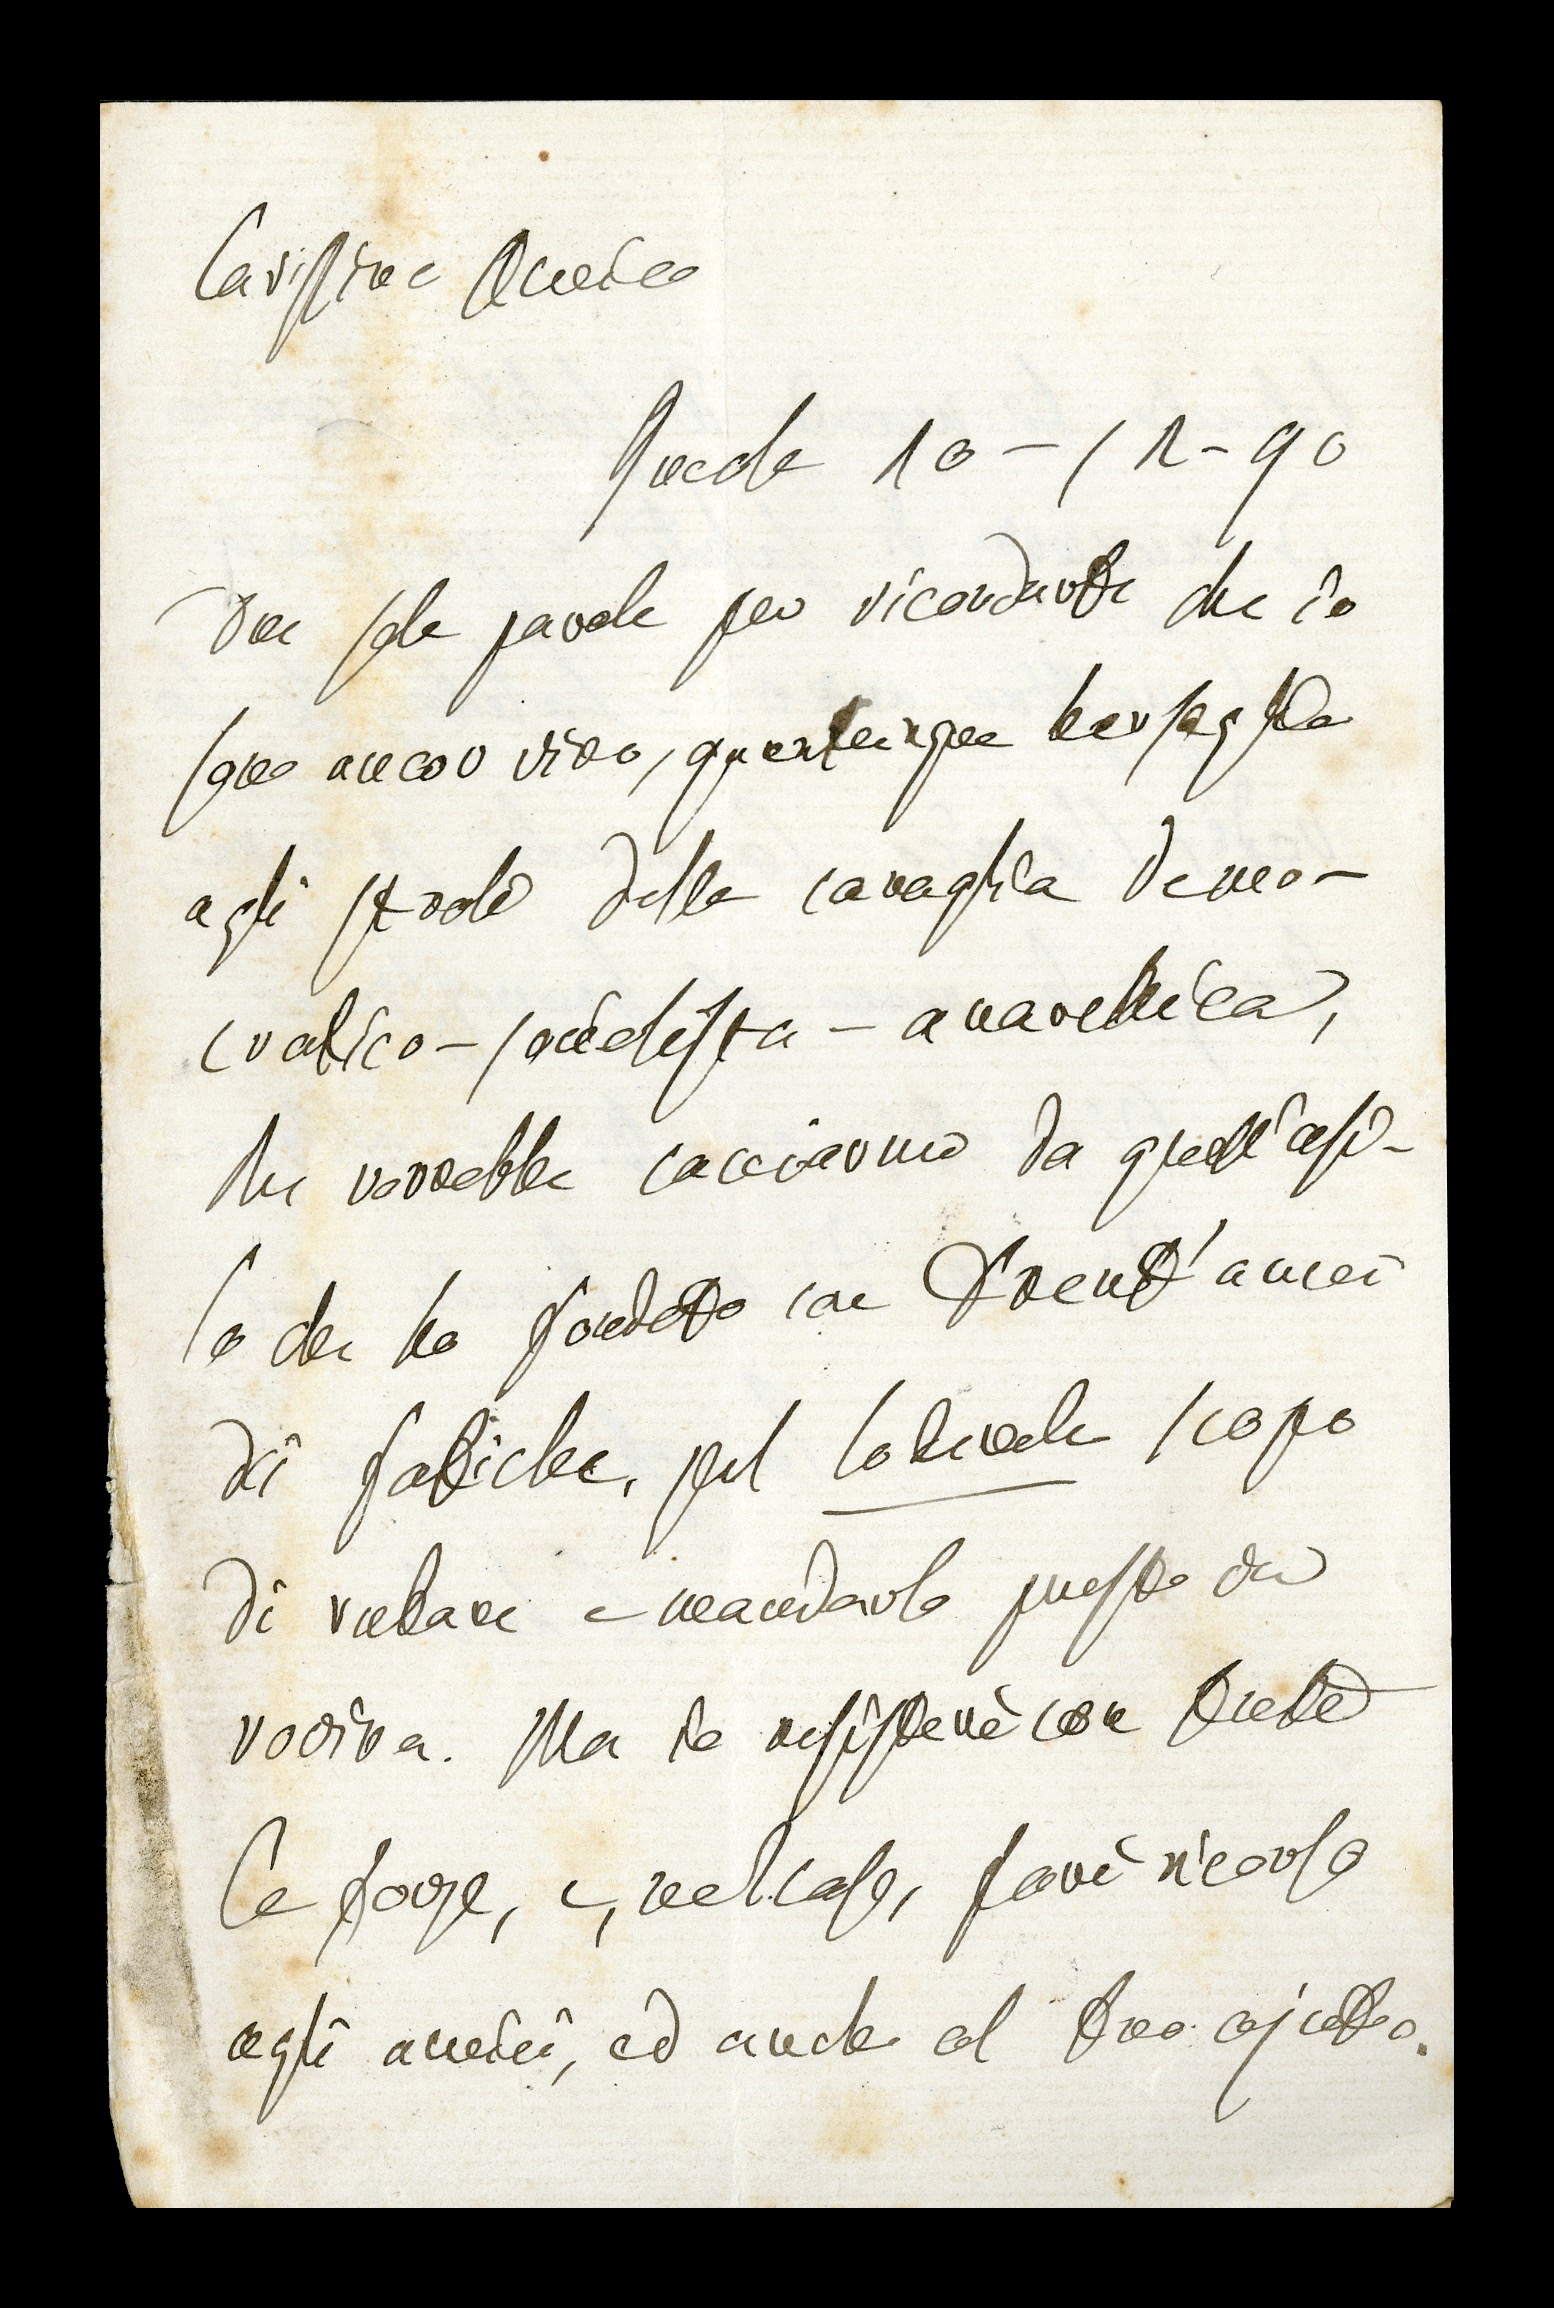 Carissimo Amico
10-12-90
Due sole parole per ricordarti che io
sono ancor vivo, quantunque bersaglio
agli strali della canaglia demo-
cratico-socialista-anarchica,
che vorrebbe cacciarmi da quell'asi-
lo che ho fondato con trent'anni
di fatiche, pel lodevole scopo
di rubare e mandarlo presto in
rovina. Ma io resisterò con tutte
le forze, e, nel caso, farò ricorso
agli amici, ed anche al tuo ajuto.